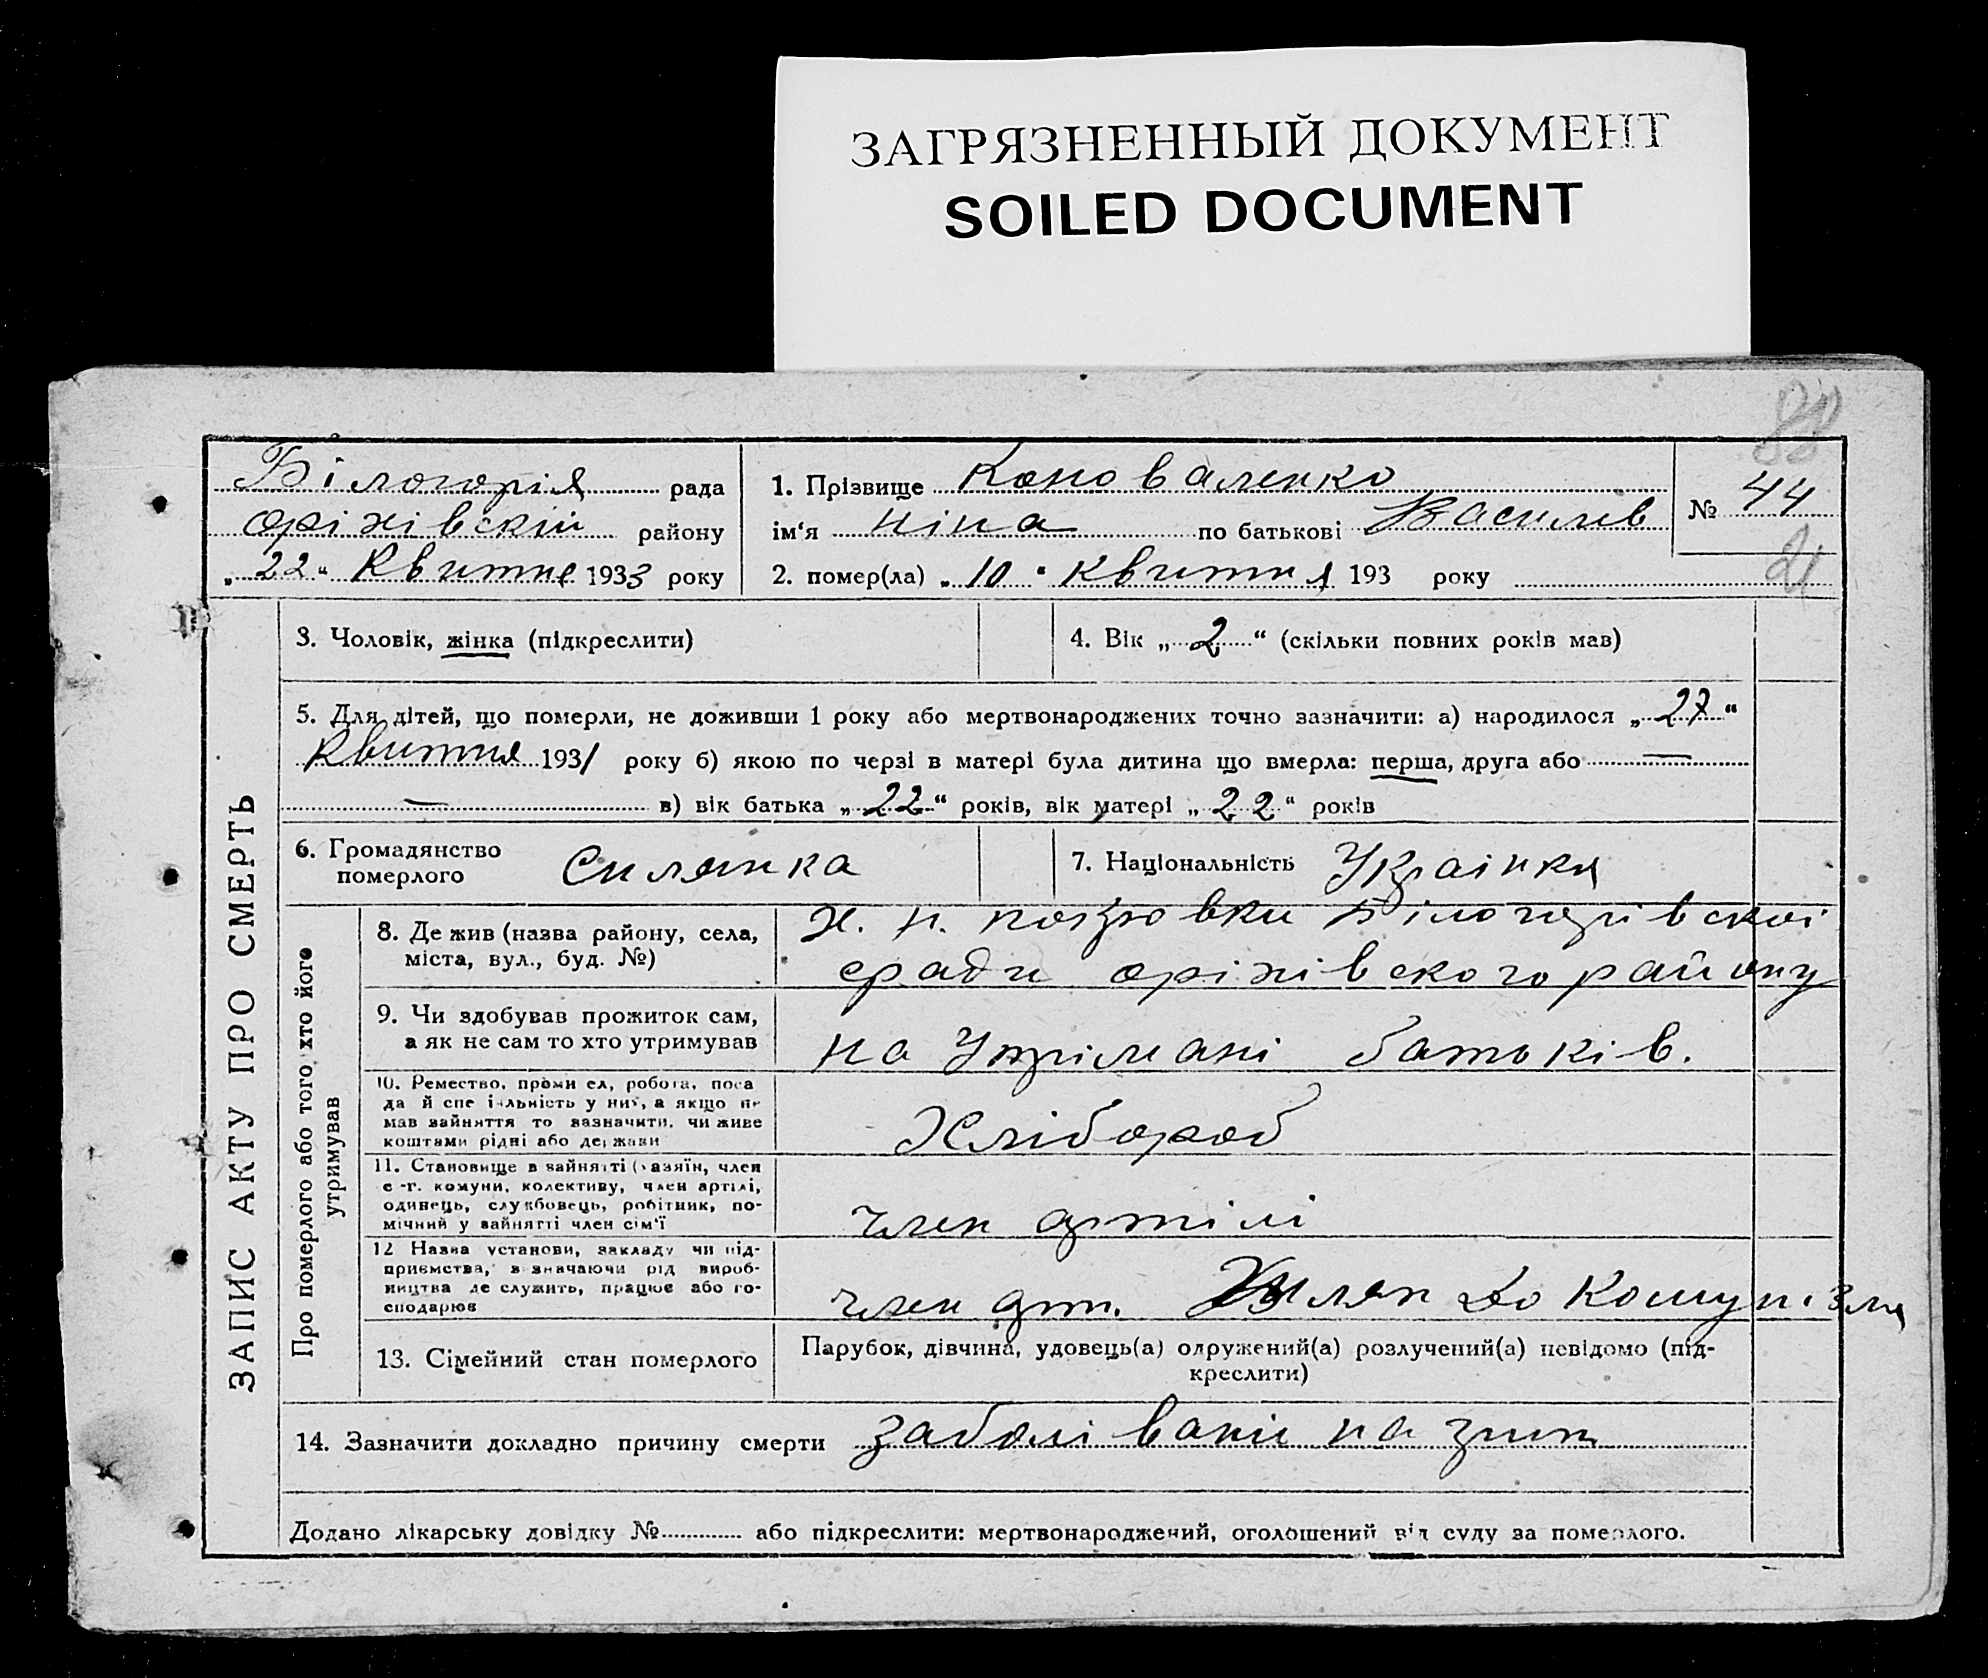 ЗАГРЯЗНЕННЫЙ ДОКУМЕНТ
SOILED DOCUMENT
88
Білогорія рада
оріхівский району
„ 22 “ Квитня 1933 року
1. Прізвище Коноваленко
ім'я Ніна по батькові Василів
2. помер(ла) „ 10 “ Квитня 193 року
№ 44
21
ЗАПИС АКТУ ПРО СМЕРТЬ
3. Чоловік, жінка (підкреслити)
4. Вік „ 2 “ (скільки повних років мав)
5. Для дітей, що померли, не доживши 1 року або мертвонароджених точно зазначити: а) народилося „ 27 “
Квитня 1931 року б) якою по черзі в матері була дитина що вмерла: перша, друга або —
— в) вік батька „ 22 “ років, вік матері „ 22 “ років
6. Громадянство
померлого
Силянка
7. Національність Украінка
Про померлого або того, хто його
утримував
8. Де жив (назва району, села,
міста, вул., буд. №)
х. н. покровки Білогорівскоі
сради оріхівского району
9. Чи здобував прожиток сам,
а як не сам то хто утримував
на Утрімані батьків.
10. Ремество, проми ел, робота, поса
да й спе іальність у ниї, а якщо не
мав зайняття то зазначити, чи живе
коштами рідні або держави
Хлібороб
11. Становище в зайнятті (хазяїн, член
с -г. комуни, колективу, член артілі,
одинець, службовець, робітник, по-
мічний у зайнятті член сім'ї
член артілі
12 Назва установи, закладу чи під-
приємства, в значаючи рід вироб-
ництва де служить, працює або го-
сподарює
член арт. Шлях до Комунізма
13. Сімейний стан померлого
Парубок, дівчина, удовець(а) одружений(а) розлучений(а) невідомо (під-
креслити)
14. Зазначити докладно причину смерти заболіваніи на
Додано лікарську довідку № або підкреслити: мертвонароджений, оголошений від суду за померлого.